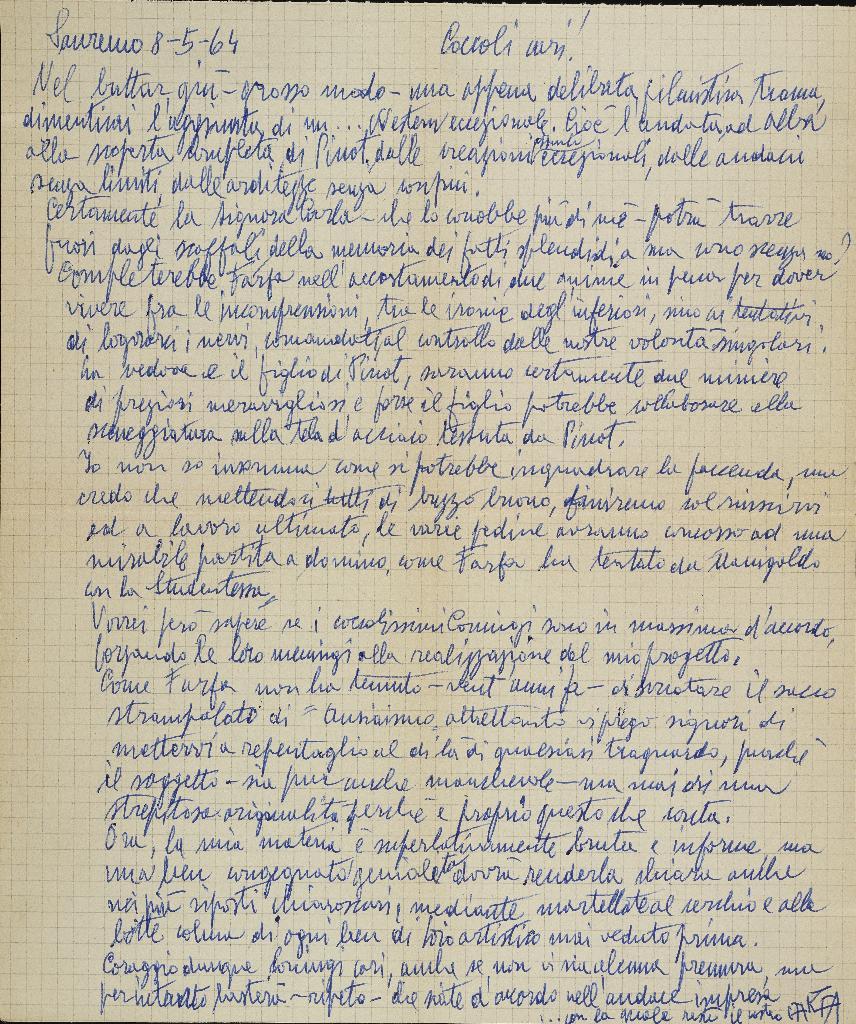 Sanremo 8-5-64 Coccoli cari!
Nel buttar giù - grosso modo - una appena delibata filmistica trama,
dimenticai l'aggiunta di un... Western eccezionale. Cioè l'andata ad Alba
alla scoperta completa di Pinot, dalle creazioni eccezionali, dalle audacie
senza limiti, dalle arditezze senza confini.
Certamente la Signora Carla - che lo conobbe più di me - potrà trarre
fuori dagli scaffali della memoria dei fatti splendidi a ma
Completerebbe Farfa nell'accostamento di due anime in pena per dover
vivere fra le incomprensioni, tra le ironie degl'inferiori, sino ai tentativi
di logorarci i nervi, comandati al controllo dalle nostre volontà singolari.
La vedova e il figlio di Pinot, saranno certamente due miniere
di preziosi meravigliosi e forse il figlio potrebbe collaborare alla
sceneggiatura sulla tela d'acciaio tessuta da Pinot.
Io non so insomma come si potrebbe inquadrare la faccenda, ma
credo che mettendoci tutti di buzzo buono, finiremo col riuscirvi
ed a lavoro ultimato, le varie pedine avranno concesso ad una
mirabile partita a domino, come Farfa ha tentato da Manigoldo
con la Studentessa.
Vorrei però sapere se i coccolissimi sono in massima d'accordo,
forzando le loro meningi alla realizzazione del mio progetto.
Come Farfa non ha temuto - vent'anni fa - di scrotare il sacco
strampalato di altrettanto vi prego signori di
mettervi a repentaglio al di là di qualsiasi traguardo, purché
il soggetto - sia pur anche manchevole - ma mai di una
strepitosa originalità perché è proprio questo che conta.
Ora, la mia materia è superlativamente bruta e informe, ma
una ben congegnata genialità dovrà renderla chiara anche
nei più riposti chiaroscuri, mediante martellate al cerchio e alla
botte colma di ogni ben di Dio artistico mai veduto prima.
Coraggio dunque cari, anche se non vi sia alcuna premura, ma
per intanto basterà - ripeto - che siate d'accordo nell'audace impresa
... con la quale resto il vostro FARFA